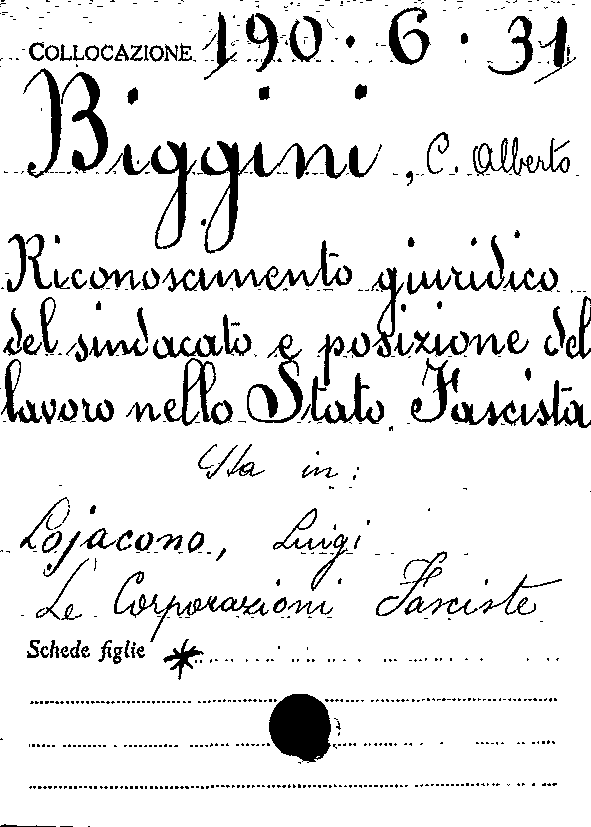 COLLOCAZIONE 190.6.31
Biggini, C. Alberto
Riconoscimento giuridico
del sindacato e posizione del
lavoro nello Stato Fascista
Sta in:
Lojacono, Luigi
Le Corporazioni Fasciste
Schede figlie *